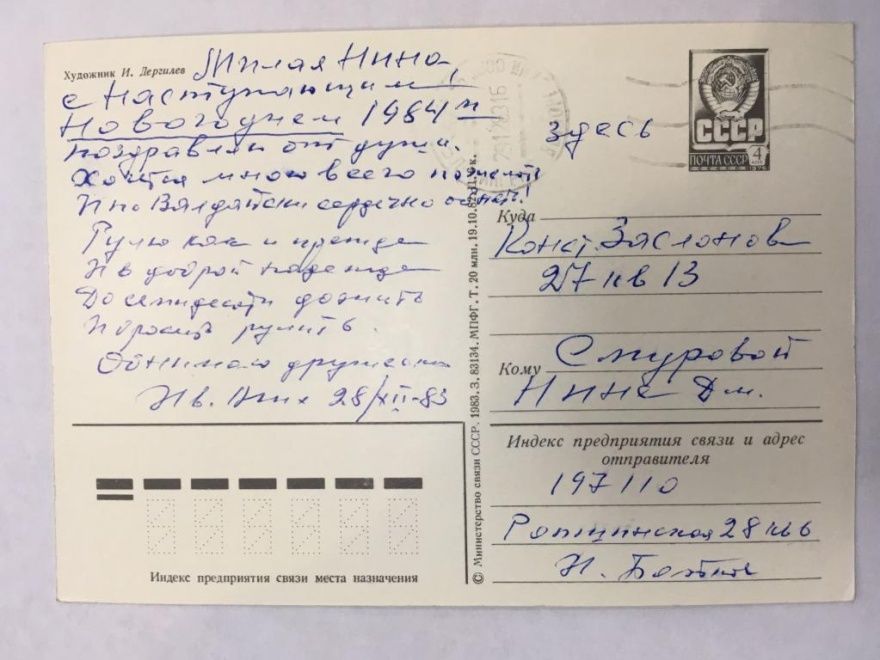 Художник И. Дергилев
Милая Нина,
с Наступающим
Новогоднем 1984 м
поздравляю от души.
Хочется много всего пожелать
И по Валдайски сердечно обнять!
Рулю как и прежде
И в доброй надежде
До семидесяти дожить
И бросить рулить.
Обнимаю дружески
Ив. Ник 28/XII-83
здесь
СССР
ПОЧТА СССР 4
Куда
Конст. Заслонова
27 кв 13
Кому Смуровой
Нине Дм.
Индекс предприятия связи и адрес
отправителя
197110
Ропшинская 28 кв 6
И.
Индекс предприятия связи места назначения
© Министерство связи СССР. 1983. З. 83134. МПФГ. Т. 20 млн. 19.10.82. Ц. 4 к.